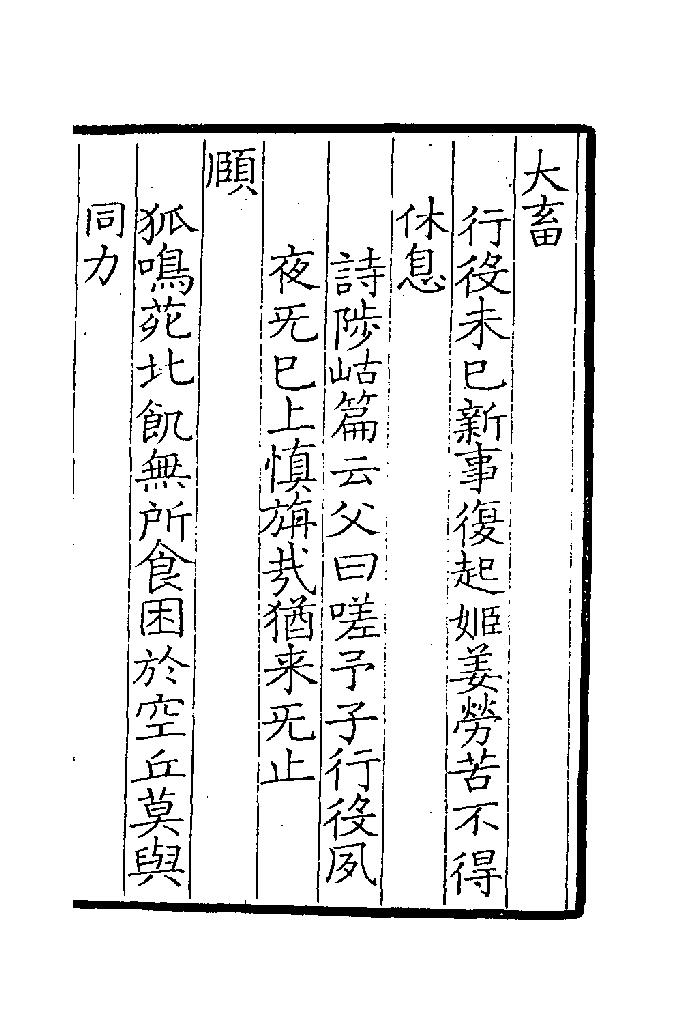 大畜
行役未已新事復起姬姜勞苦不得
休息
詩陟岵篇云父曰嗟予子行役夙
夜旡已上慎旃㢤猶来旡止
頤
狐鳴苑北飢無所食困於空丘莫與
同力